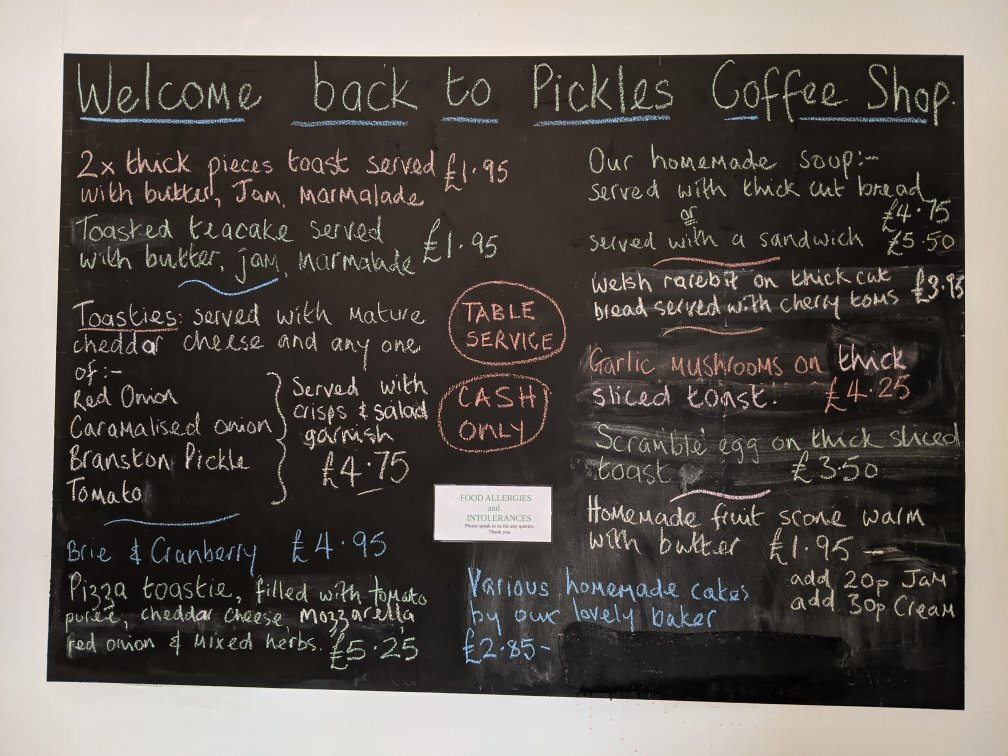 Welcome back to Pickles Coffee Shop.
2x thick pieces toast served £1.95
with butter, Jam, Marmalade
Toasted teacake served
with butter, jam, marmalade £1.95
Toasties: served with Mature
cheddar cheese and any one
of:-
Red Onion
Caramalised onion
Branston Pickle
Tomato
Served with
crisps & salad
garnish
£4.75
Brie & Cranberry £4.95
Pizza toastie, filled with tomato
puree, cheddar cheese Mozzarella
red onion & Mixed herbs. £5.25
TABLE
SERVICE
CASH
ONLY
FOOD ALLERGIES
and
INTOLERANCES
Please speak to us for any queries.
Thank you.
Various homemade cakes
by our lovely baker
£2.85-
Our homemade soup:-
served with thick cut bread
£4.75
or
served with a sandwich £5.50
Welsh rarebit on thick cut
bread served with cherry toms £3.95
Garlic Mushrooms on thick
sliced toast! £4.25
Scramble egg on thick sliced
toast £3.50
Homemade fruit scone warm
with butter £1.95-
add 20p Jam
add 30p Cream